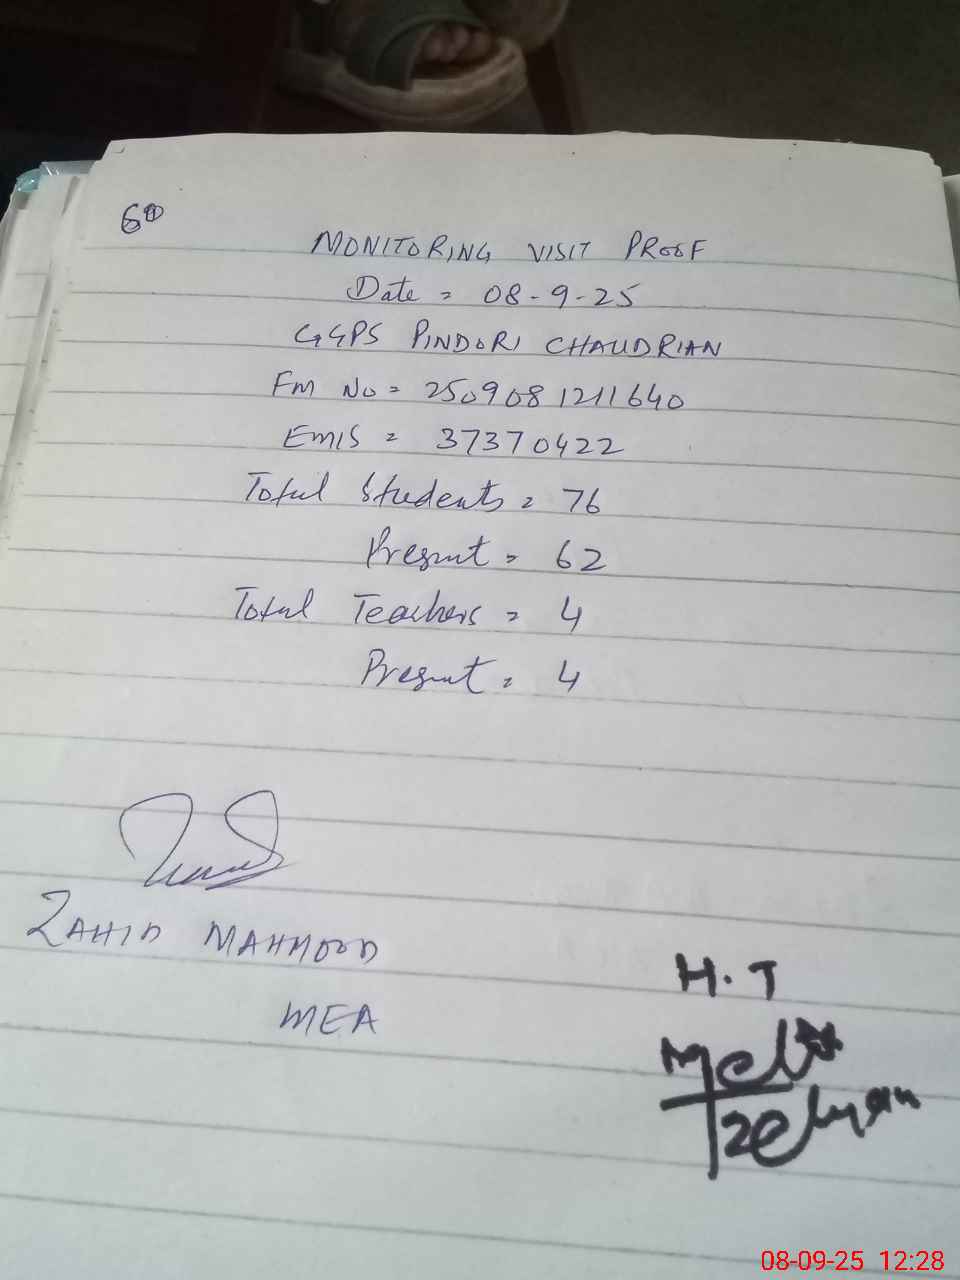 MONITORING VISIT PROOF
Date = 08-9-25
GGPS PINDORI CHAUDRIAN
Fm No = 2509081211640
EMIS = 37370422
Total Students = 76
Present = 62
Total Teachers = 4
Present = 4
ZAHID MAHMOOD
MEA
H.T
08-09-25 12:28